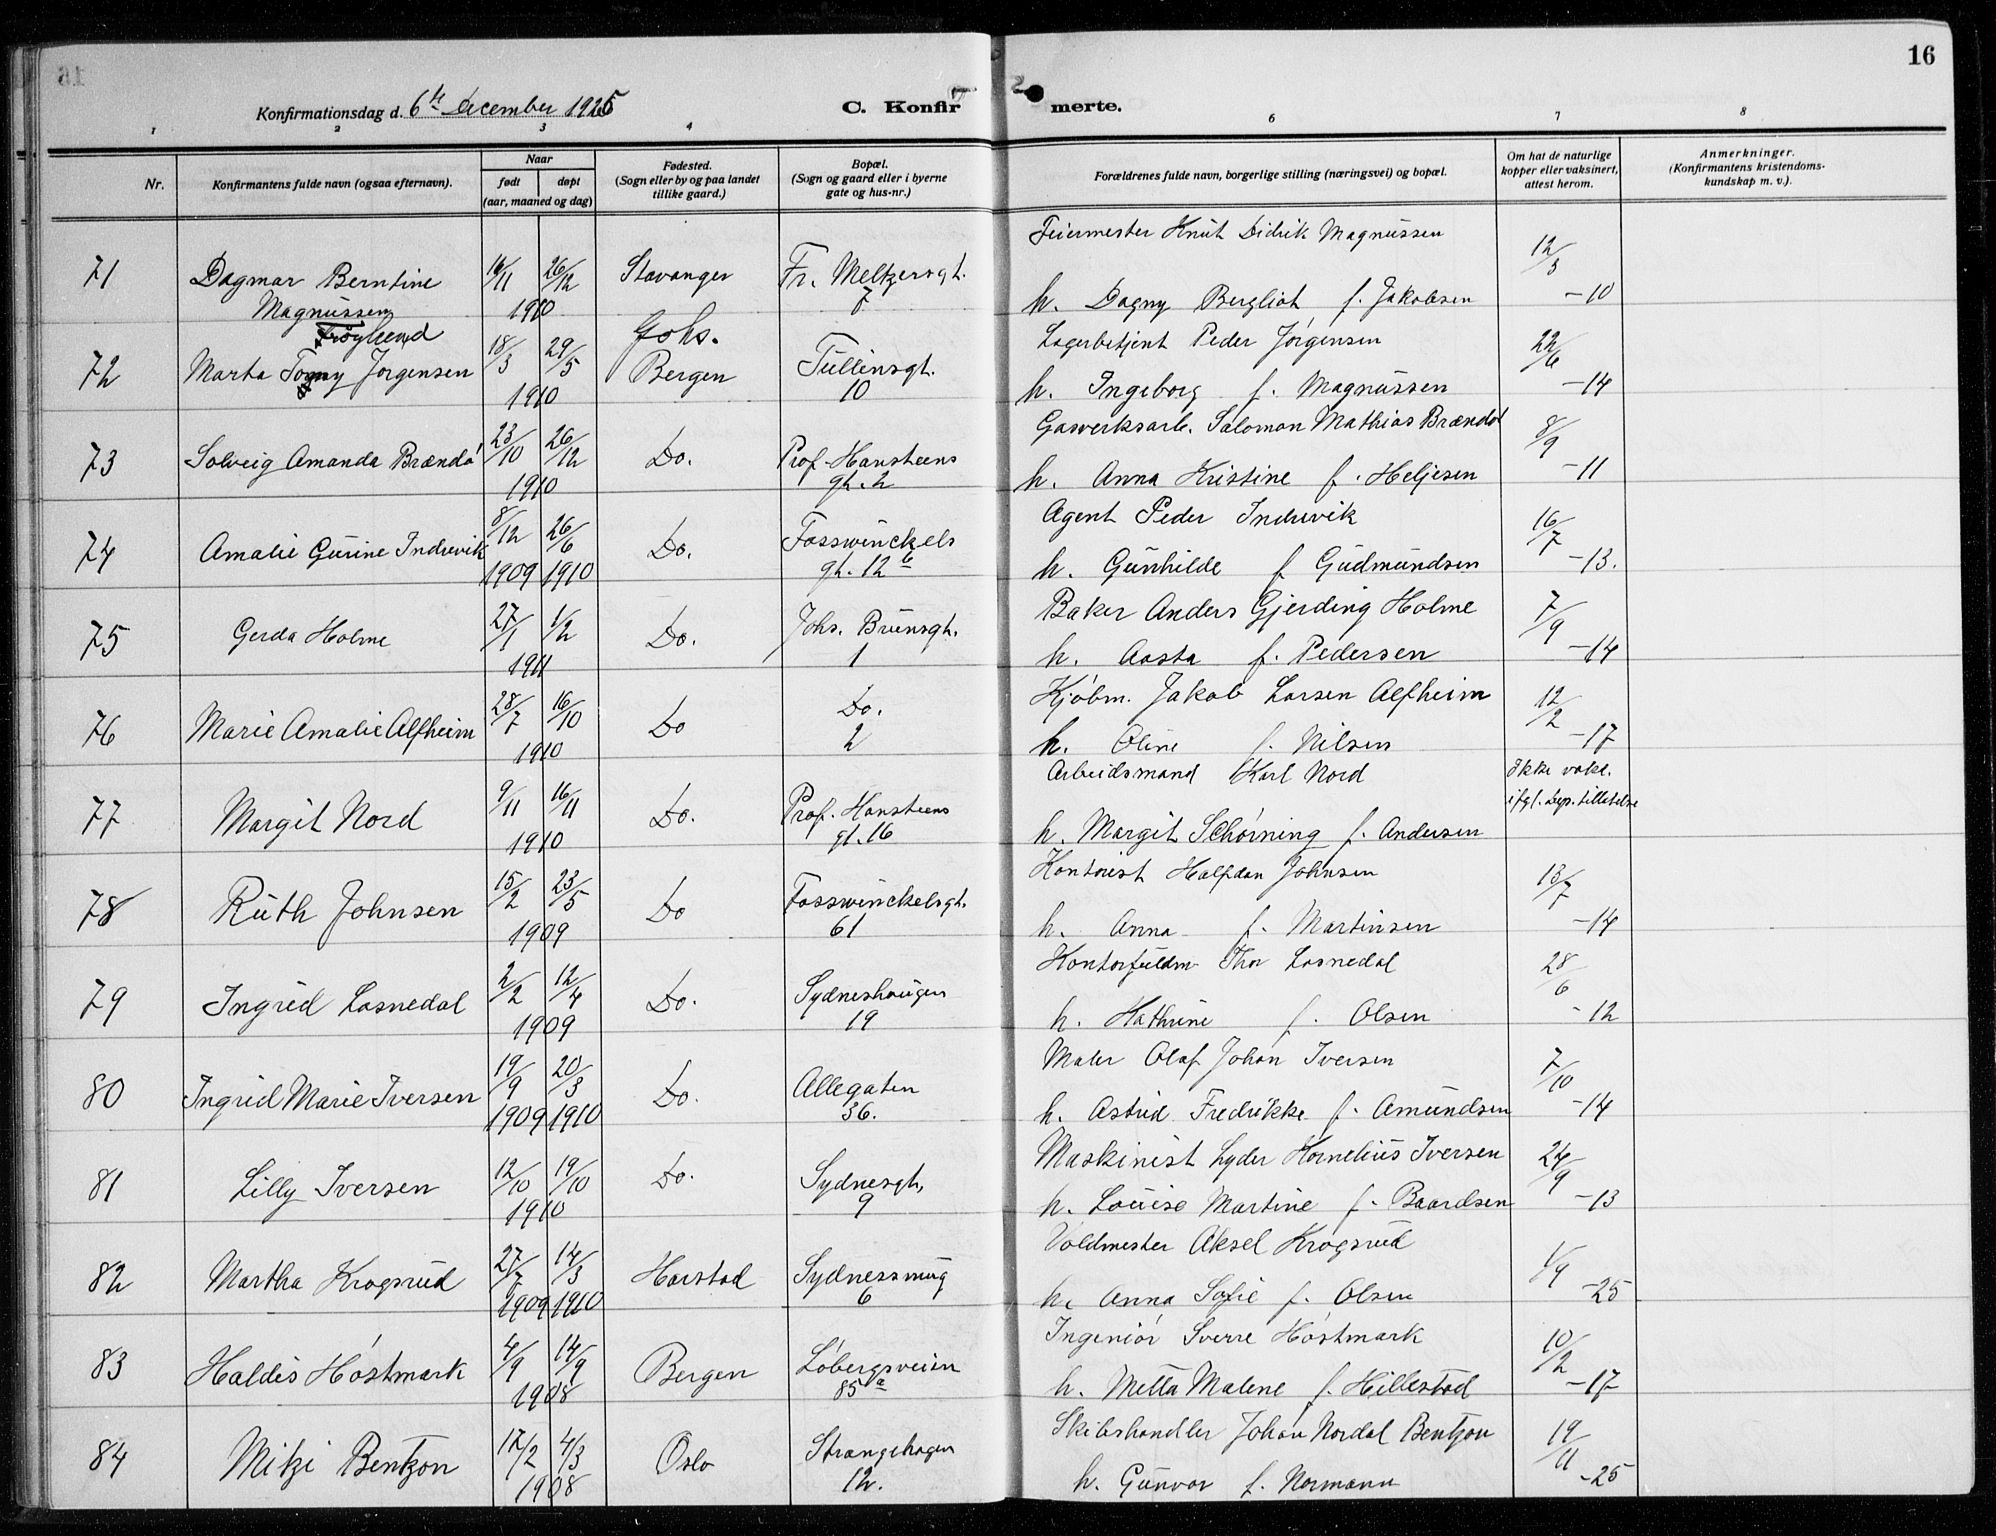 16
Konfirmationsdag d. 6te december 1925
C. Konfirmerte.
1 2 3 4 6 7 8
Nr.
Konfirmantens fulde navn (ogsaa efternavn).
Naar
født
døpt
(aar, maaned og dag)
Fødested.
(Sogn eller by og paa landet
tillike gaard.)
Bopæl.
(Sogn og gaard eller i byerne
gate og hus-nr.)
Forældrenes fulde navn, borgerlige stilling (næringsvei) og bopæl.
Om hat de naturlige
kopper eller vaksinert,
attest herom.
Anmerkninger.
(Konfirmantens kristendoms-
kundskap m. v.).
Feiermester Knut Didrik Magnussen
71 Dagmar Berntine 16/11 26/12 Stavanger Fr. Meltzersgt. 12/3
Magnussen 1910 7 h. Dagny Bergliot f. Jakobsen -10
Johs. Lagerbetjent Peder Jörgensen
72 Marta Jorgensen 18/3 29/5 Bergen Tullinsgt. 22/6
1910 10 h. Ingeborg f. Magnussen -14
Gasverksarb. Salomon Mathias Brændö
73 Solveig Amanda Brændö 23/10 26/12 Do. Prof. Hansteens 8/9
1910 gt. 2 h. Anna Kristine f. Heljesen -11
Agent Peder Indrevik
74 Amalie Gurine Indrevik 8/12 26/6 Do. Fosswinckels 16/7
1909 1910 gt. 12 b h. Gunhilde f Gudmundsen -13.
Baker Anders Gjerding Holme
75 Gerda Holme 27/1 1/2 Do. Johs. Brunsgt. 7/9
1911 1 h. Aasta f. Pedersen -14
Kjöbm. Jakob Larsen Alfheim
76 Marie Amalie Alfheim 28/7 16/10 Do Do. 12/2
1910 2 h. Oline f. Nilsen -17
Arbeidsmand Karl Nord Ikke vakc.
77 Margit Nord 9/11 16/11 Do. Prof. Hansteens ifgl. dep. tillatelse
1910 gt. 16 h. Margit Schörning f. Andersen
Kontorist Halfdan Johnsen
78 Ruth Johnsen 15/2 23/5 Do Fosswinckelsgt. 13/7
1909 61 h. Anna f. Martinsen -14
Kontorfuldm Thor Losnedal
79 Ingrid Losnedal 2/2 12/4 Do. Sydneshaugen 28/6
1909 19 h. Kathrine f. Olsen -12
Maler Olaf Johan Iversen
80 Ingrid Marie Iversen 19/9 20/3 Do. Allegaten 7/10
1909 1910 36. h. Astrid Fredrikke f. Amundsen -14
Maskinist Lyder Kornelius Iversen
81 Lilly Iversen 12/10 19/10 Do. Sydnesgt, 24/9
1910 9 h. Louise Martine f. Baardsen -13
Voldmester Aksel Krogsrud
82 Martha Krogsrud 27/7 14/3 Harstad Sydnessmug 1/9
1909 1910 6 h. Anna Sofie f. Olsen -25
Ingeniör Sverre Höstmark
83 Haldis Höstmark 4/9 14/9 Bergen Löbergsveien 10/2
1908 85 a h. Metta Malene f. Hillestad -17
Skibshandler Johan Nordal Bentzon
84 Mitzi Bentzon 17/2 4/3 Oslo Strangehagen 19/11
1908 12. h. Gunvor f. Normann -25